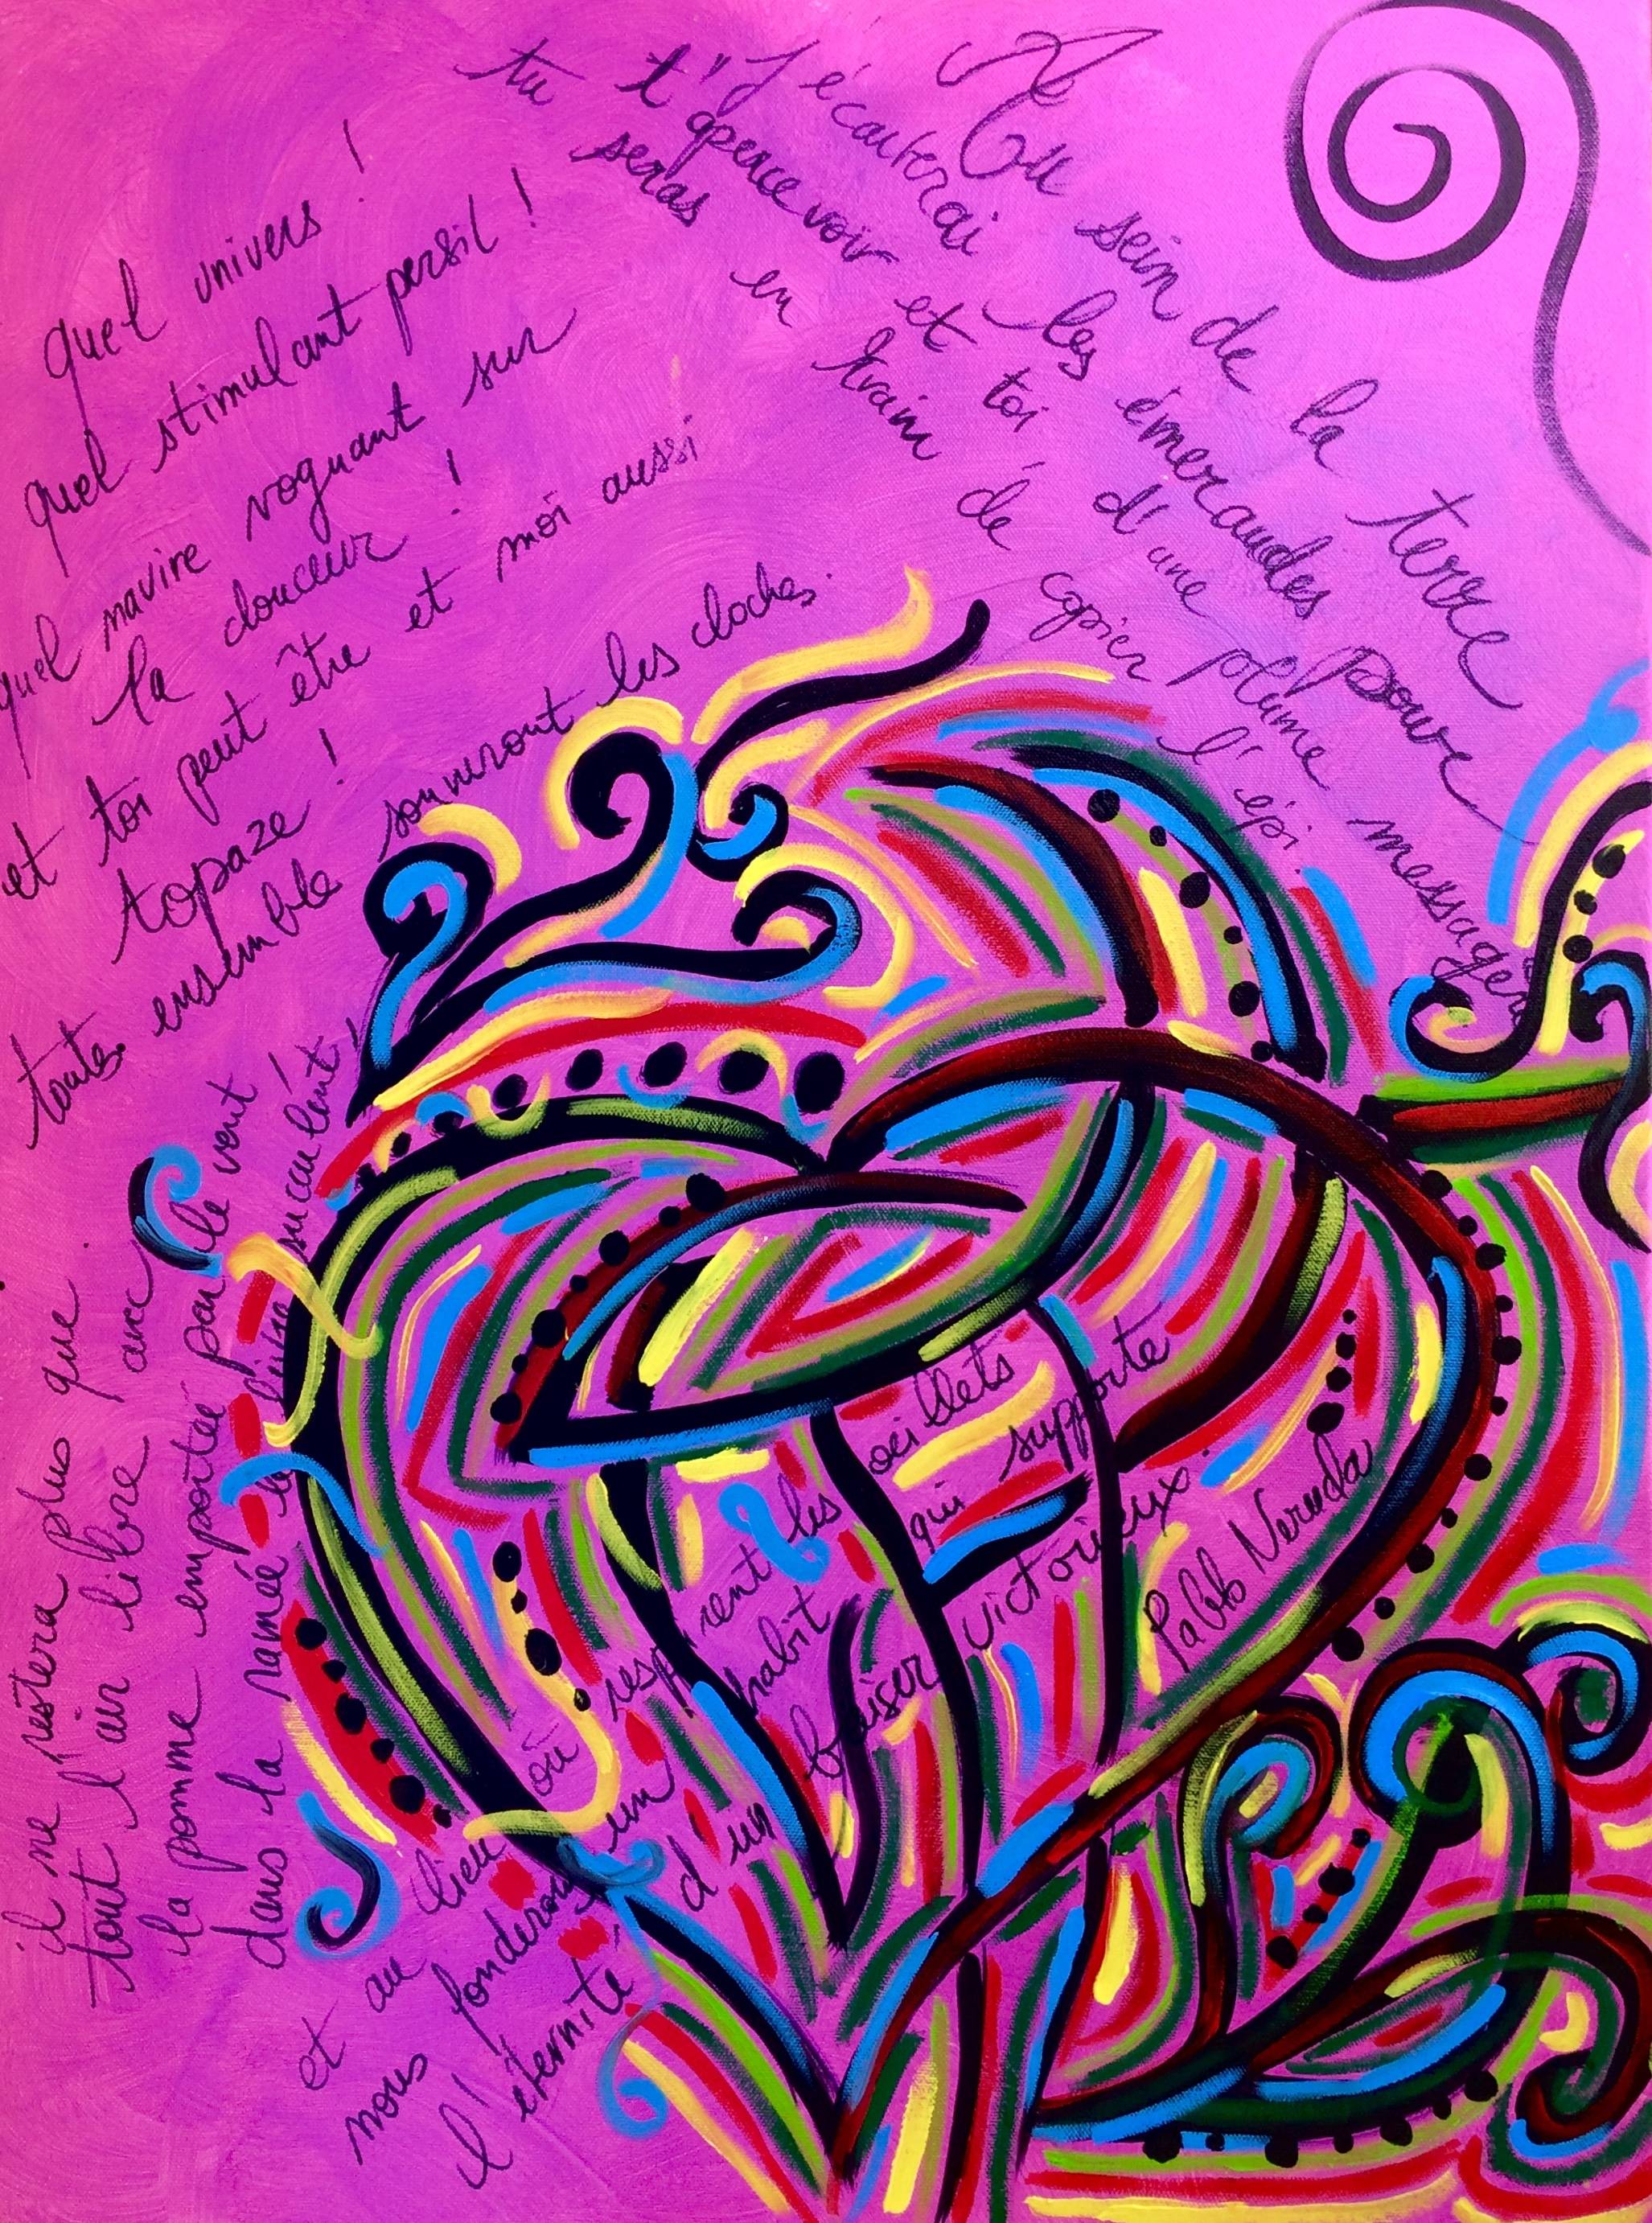 Au sein de la terre
j'écarterai les émeraudes pour
t'apercevoir et toi d'une plume messagère
tu seras en train de copier l'épi
quel univers !
quel stimulant persil !
quel navire voguant sur
la douceur !
et toi peut être et moi aussi
topaze !
toutes ensemble sonneront les cloches.
il ne restera plus que
tout l'air libre avec
la pomme emportée par le vent
dans la ramée le succulent
et au lieu où respirent les œillets
nous fonderons un habit qui supporte
l'éternité d'un baiser victorieux.
Pablo Neruda